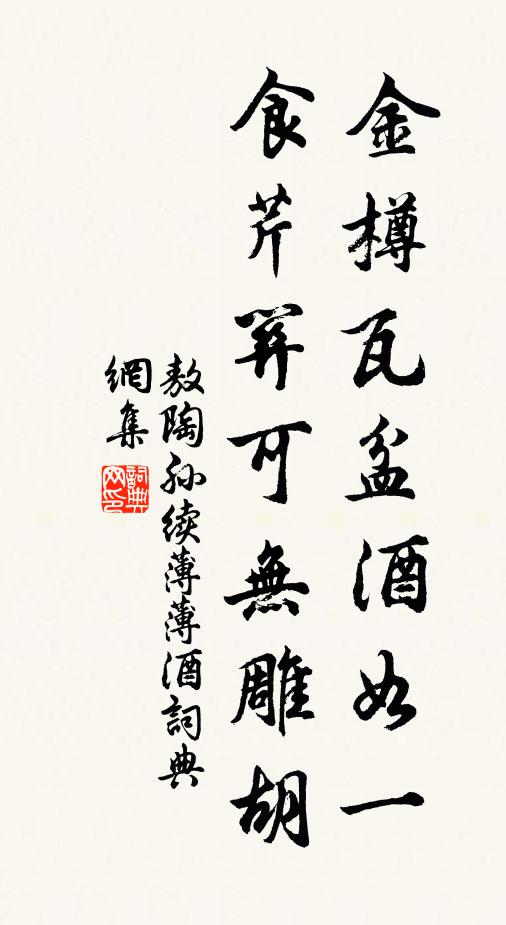 金樽瓦盆酒如一
食芹羿可無雕胡
敖陶孙续薄薄酒詞典
網集
詞典網印